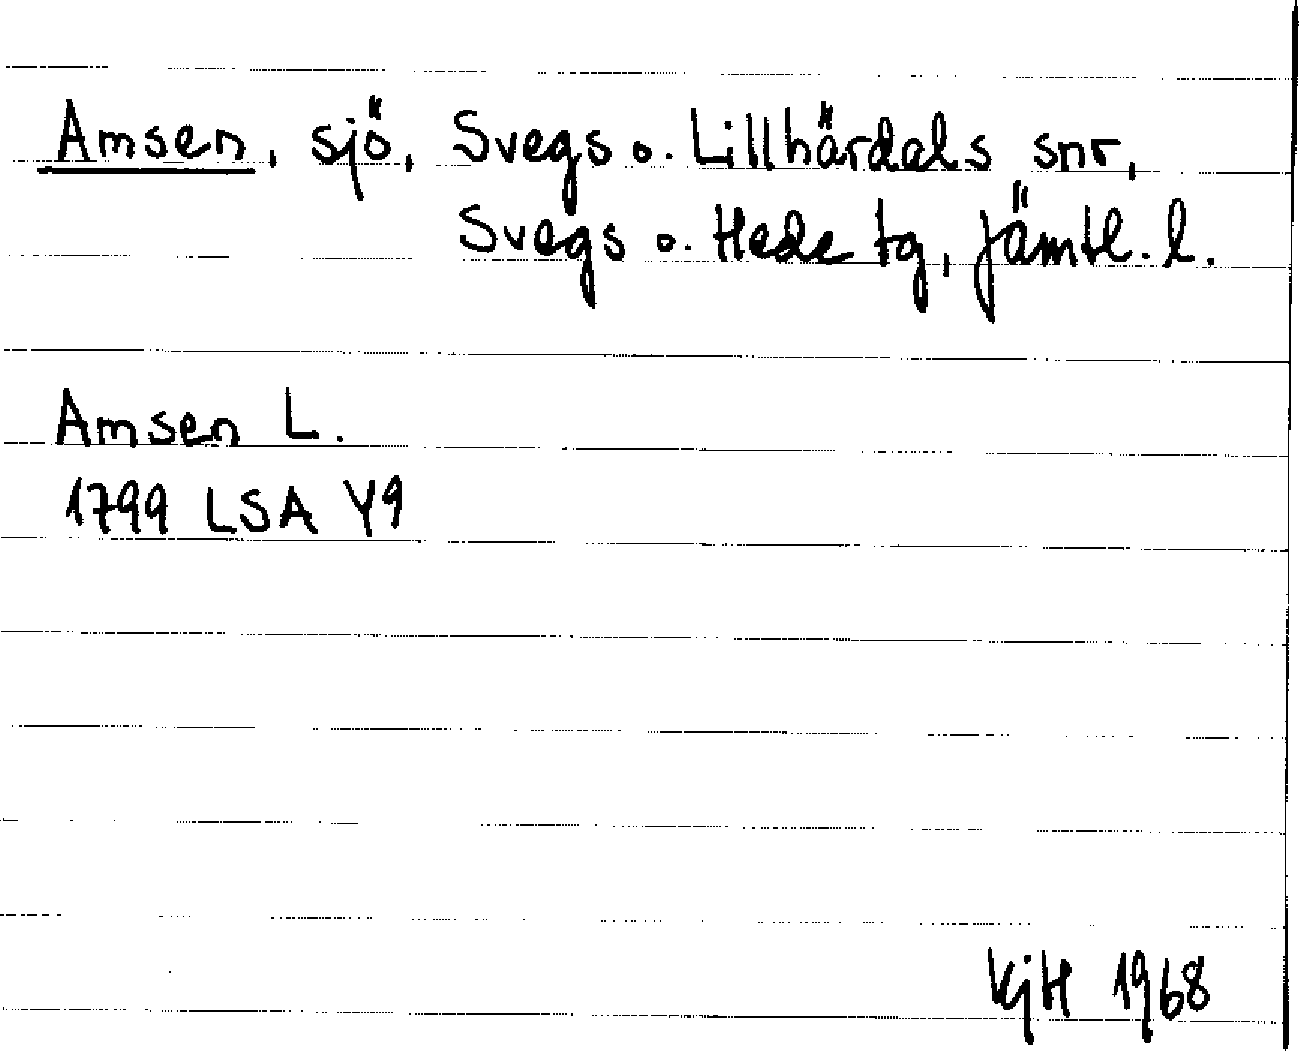 Amsen, sjö, Svegs o. Lillhärdals snr,
Svegs o. Hede tg, Jämtl. l.
Amsen L.
1799 LSA Y9
KjH 1968